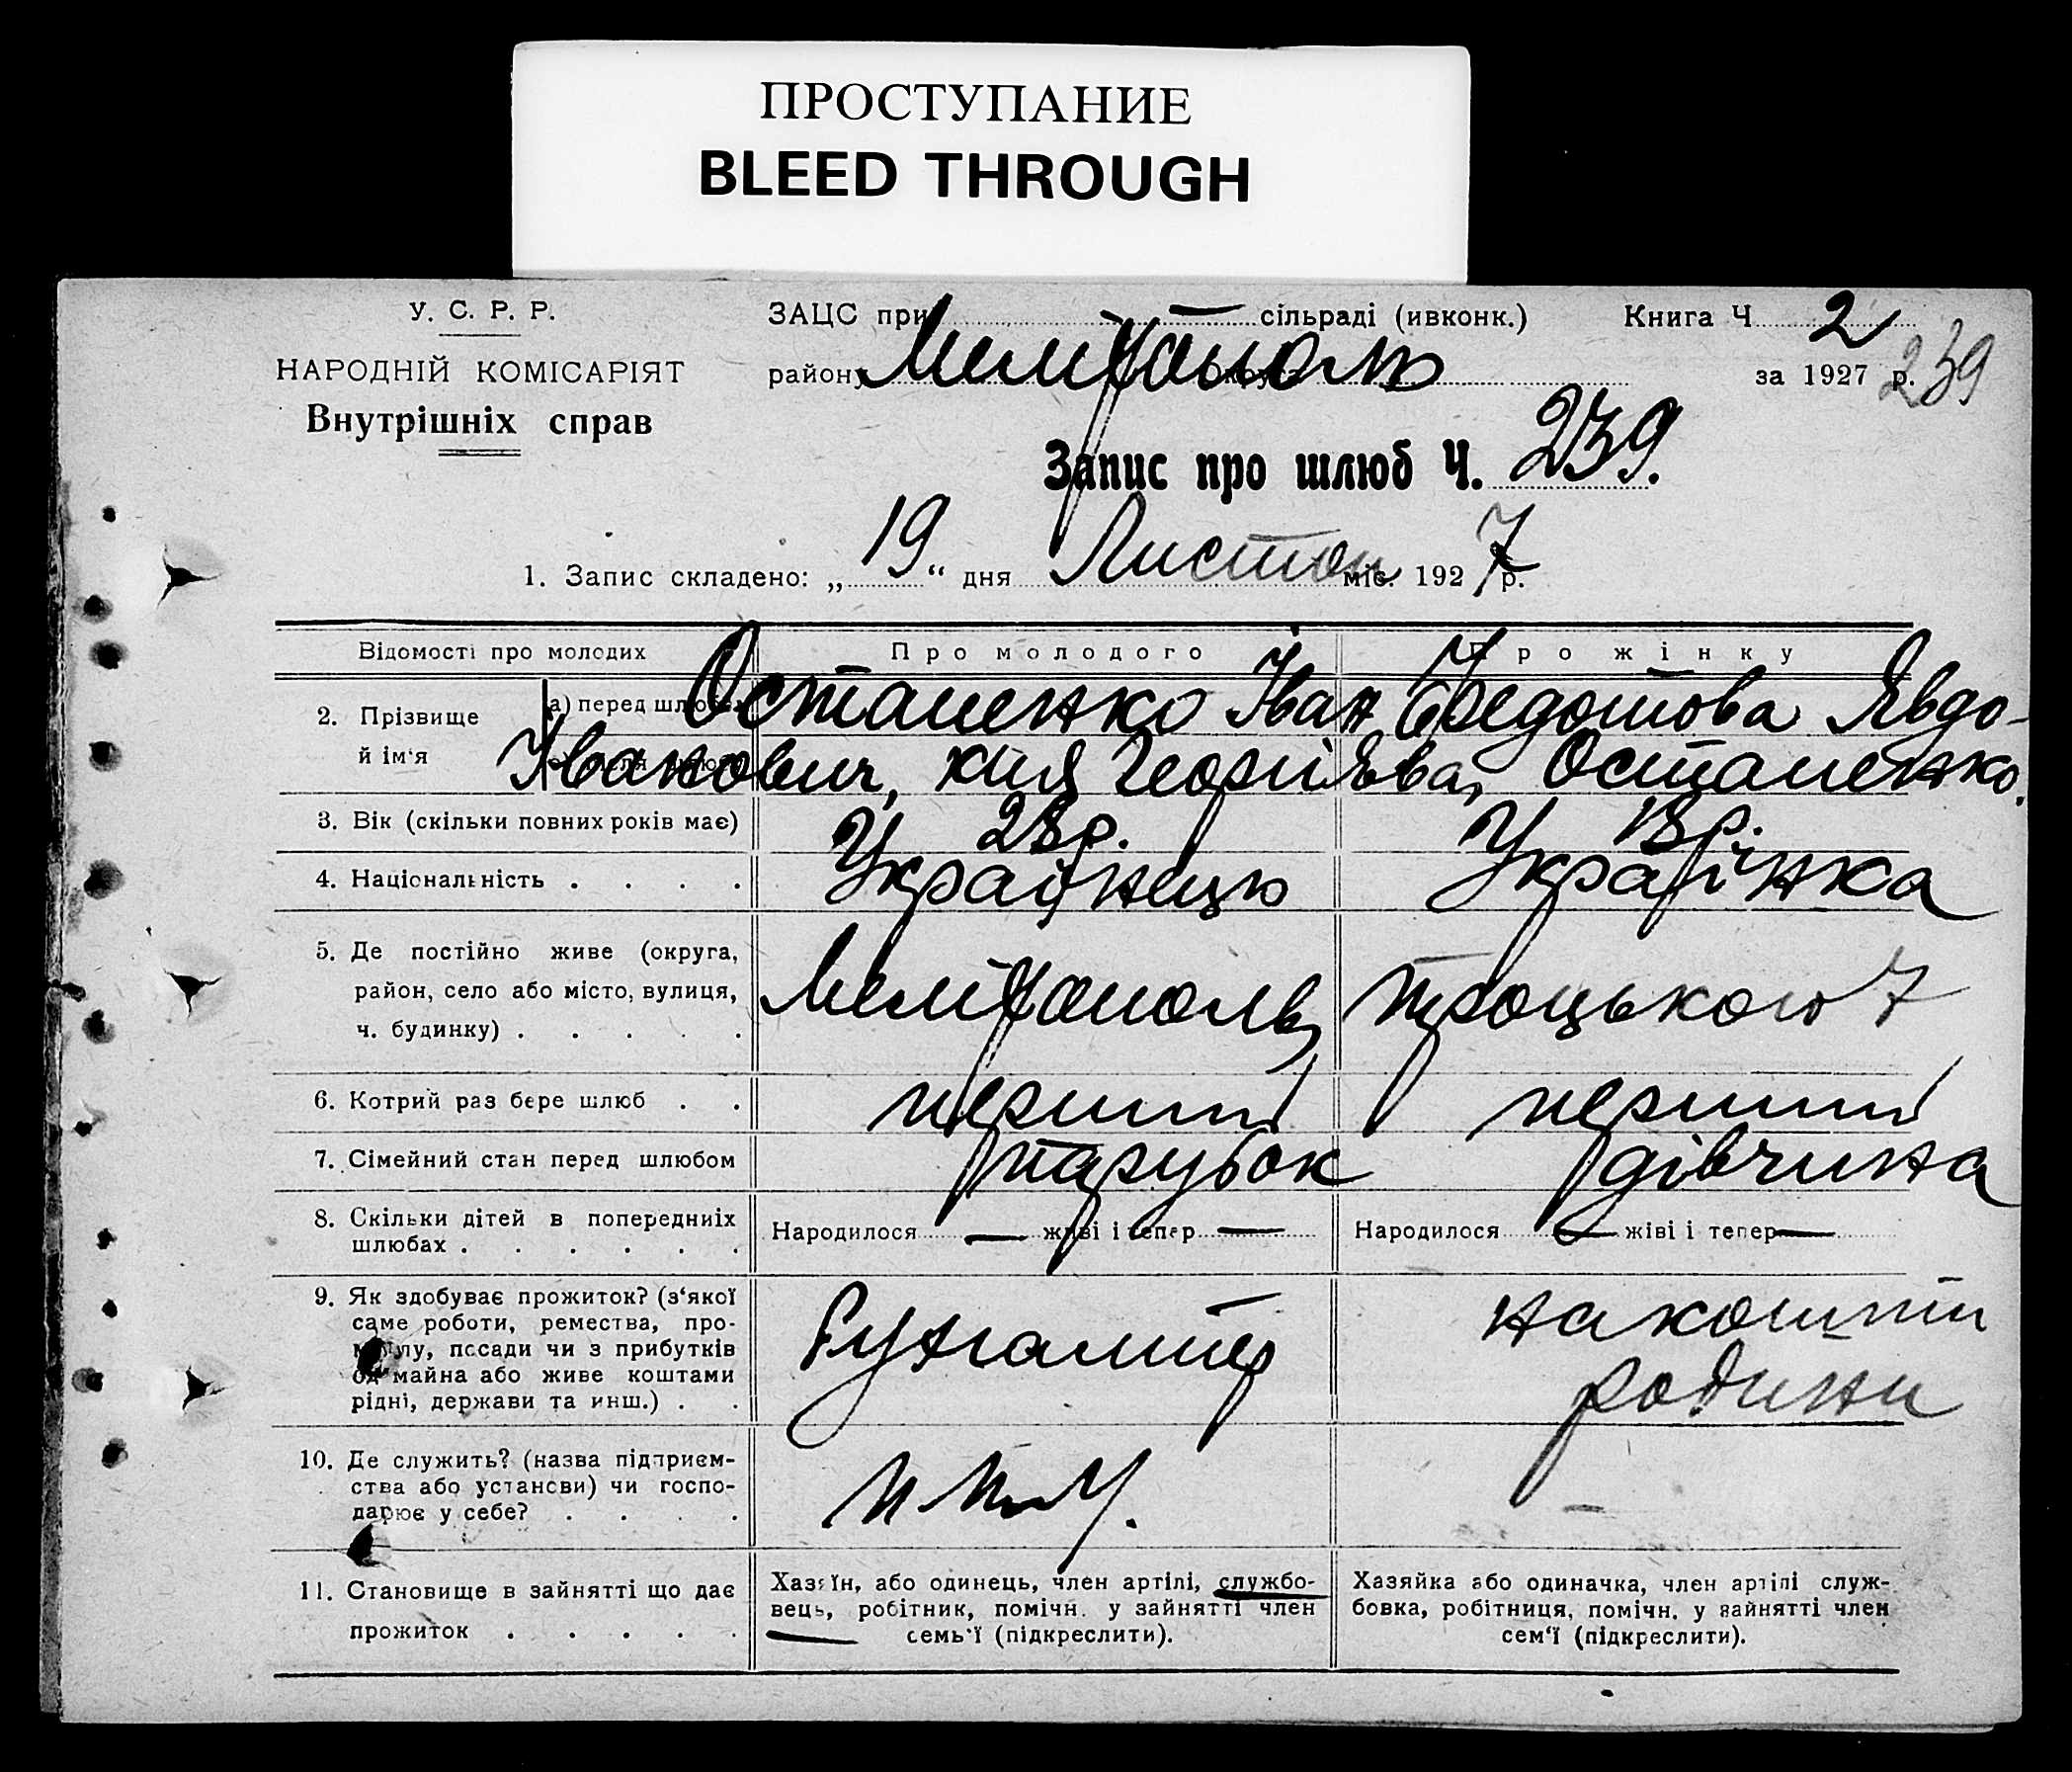 ПРОСТУПАНИЕ
BLEED THROUGH
У. С. Р. Р.
НАРОДНІЙ КОМІСАРІЯТ
Внутрішніх справ
ЗАЦС при сільраді (ивконк.) Книга Ч 2
району Мелітополь за 1927 р. 239
Запис про шлюб Ч. 239.
1. Запис складено: „ 19 “ дня Листоп міс. 1927 р.
Відомості про молодих Про молодого Про жінку
2. Прізвище й ім'я
а) перед шлюбом Остапенко Іван Федотова Явдо-
Іванович, кия Георгіева, Остапенко.
3. Вік (скільки повних років має) 23 р. 18 р.
4. Національність . . . . Українець Українка
5. Де постійно живе (округа,
район, село або місто, вулиця,
ч. будинку) . . . . . Мелітополь, Троцького 7
6. Котрий раз бере шлюб . . перший перший
7. Сімейний стан перед шлюбом парубок дівчина
8. Скільки дітей в попередниіх
шлюбах . . . . . .
Народилося — живі і тепер —
Народилося — жіві і тепер —
9. Як здобуває прожиток? (з'якої
саме роботи, ремества, про-
мислу, посади чи з прибутків
од майна або живе коштами
рідні, держави та инш.) . .
Бухгалтер
на кошти
родини
10. Де служить? (назва підприєм-
ства або установи) чи госпо-
дарює у себе? . . . .
11. Становище в зайнятті що дає
прожиток . . . . .
Хазяїн, або одинець, член артілі, службо-
вець, робітник, помічн. у зайнятті член
семь'ї (підкреслити).
Хазяйка або одиначка, член артілі служ-
бовка, робітниця, помічн. у зайнятті член
сем'ї (підкреслити).